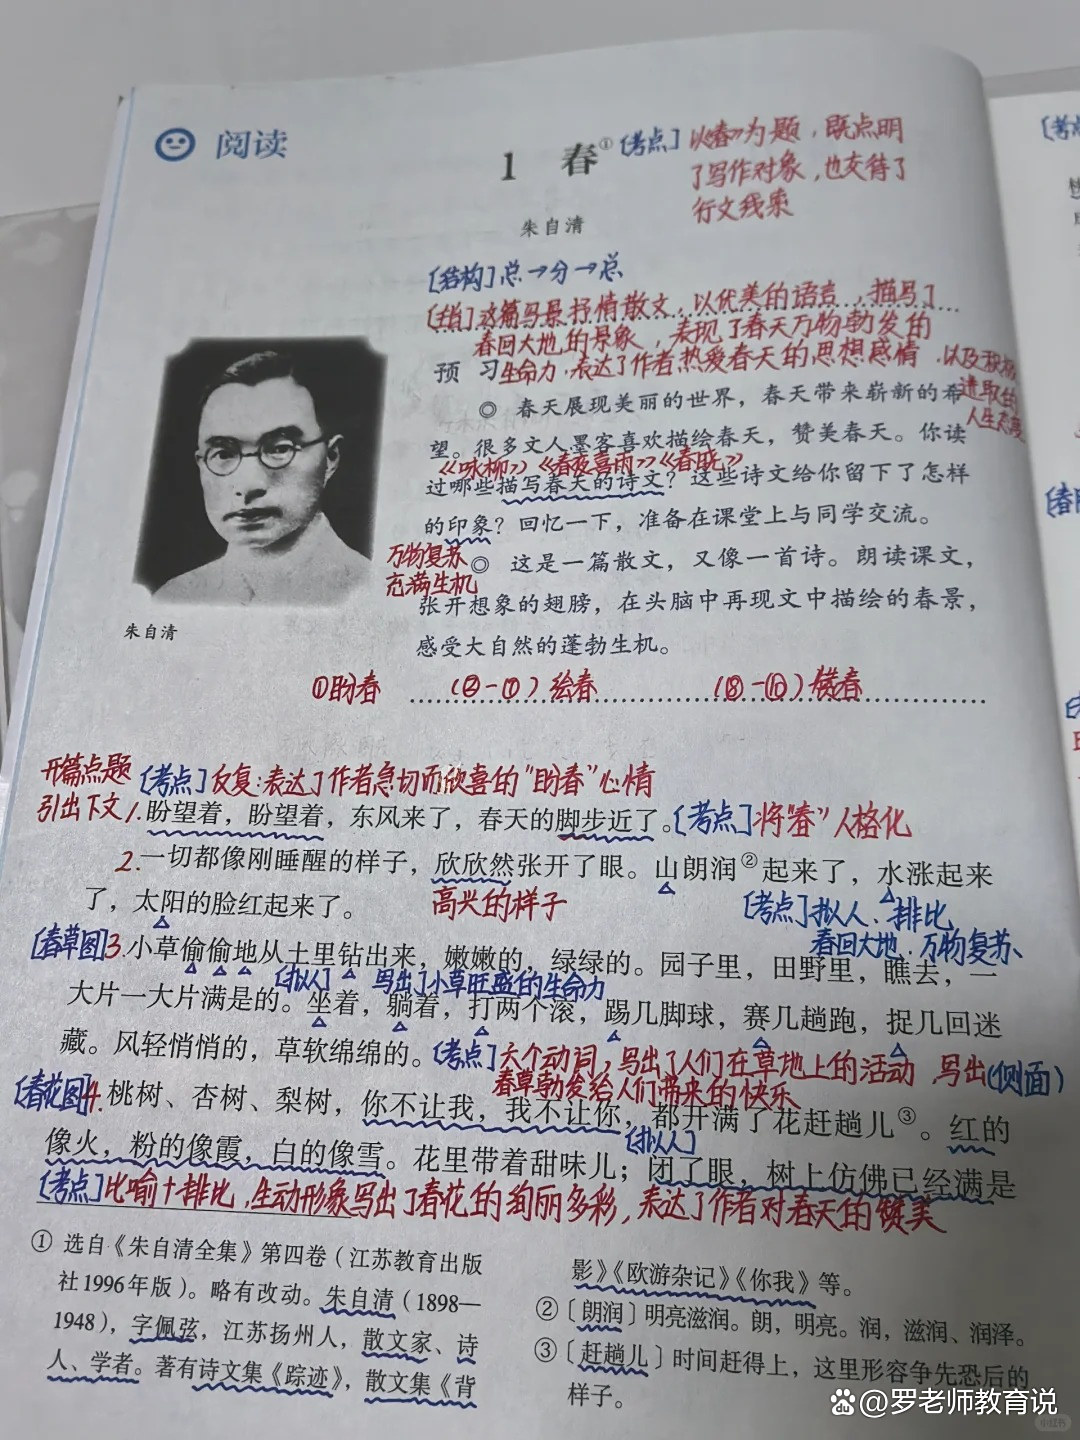 阅读
1 春① [考点]以《春》为题，既点明
了写作对象，也交待了
行文线索
朱自清
[结构]总→分→总
[主旨]这篇写景抒情散文，以优美的语言，描写了
春回大地的景象，表现了春天万物勃发的
生命力，表达了作者热爱春天的思想感情，以及积极
进取的
人生态度
预 习
◎ 春天展现美丽的世界，春天带来崭新的希
望。很多文人墨客喜欢描绘春天，赞美春天。你读
《咏柳》《春夜喜雨》《春晓》
过哪些描写春天的诗文？这些诗文给你留下了怎样
的印象？回忆一下，准备在课堂上与同学交流。
万物复苏
充满生机
◎ 这是一篇散文，又像一首诗。朗读课文，
张开想象的翅膀，在头脑中再现文中描绘的春景，
感受大自然的蓬勃生机。
朱自清
①盼春 (②-⑦)绘春 (⑧-⑩)赞春
开篇点题 [考点]反复：表达了作者急切而欣喜的“盼春”心情
引出下文 1.盼望着，盼望着，东风来了，春天的脚步近了。[考点]将“春”人格化
2.一切都像刚睡醒的样子，欣欣然张开了眼。山朗润②起来了，水涨起来
了，太阳的脸红起来了。 高兴的样子 [考点]拟人、排比
春回大地，万物复苏
[春草图]3.小草偷偷地从土里钻出来，嫩嫩的，绿绿的。园子里，田野里，瞧去，一
[拟人] 写出了小草旺盛的生命力
大片一大片满是的。坐着，躺着，打两个滚，踢几脚球，赛几趟跑，捉几回迷
藏。风轻悄悄的，草软绵绵的。[考点]六个动词，写出了人们在草地上的活动，写出(侧面)
春草勃发给人们带来的快乐
[春花图]4.桃树、杏树、梨树，你不让我，我不让你，都开满了花赶趟儿③。红的
[拟人]
像火，粉的像霞，白的像雪。花里带着甜味儿；闭了眼，树上仿佛已经满是
[考点]比喻+排比，生动形象写出了春花的绚丽多彩，表达了作者对春天的赞美
① 选自《朱自清全集》第四卷（江苏教育出版
社1996年版）。略有改动。朱自清（1898—
1948），字佩弦，江苏扬州人，散文家、诗
人、学者。著有诗文集《踪迹》，散文集《背
影》《欧游杂记》《你我》等。
②〔朗润〕明亮滋润。朗，明亮。润，滋润、润泽。
③〔赶趟儿〕时间赶得上，这里形容争先恐后的
样子。
[考点
[春
@罗老师教育说
小红书